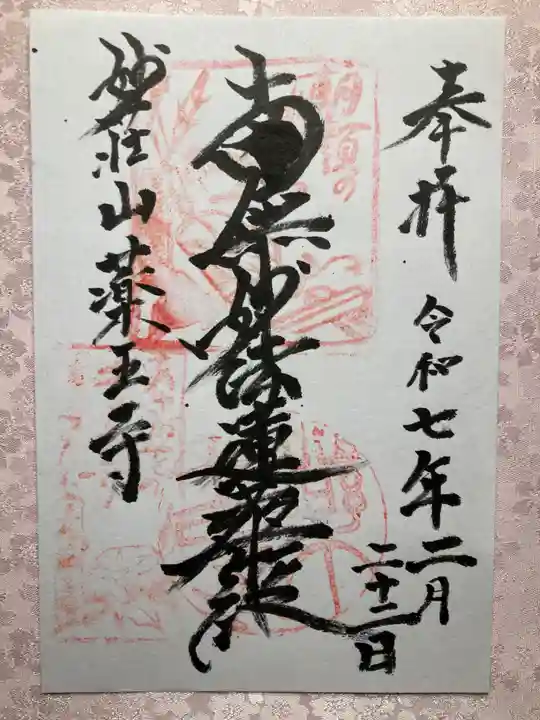 奉拝
令和七年二月
二十二日
南無妙法蓮華経
妙荘山薬王寺